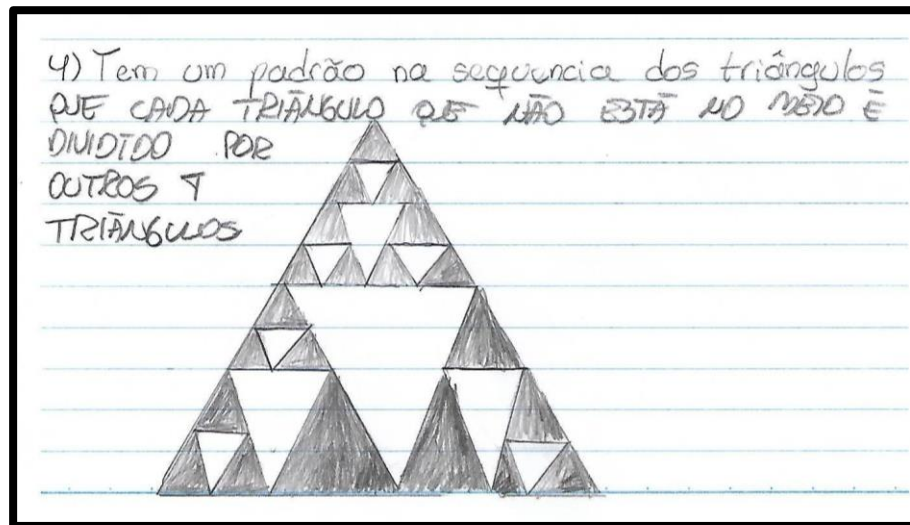 4) Tem um padrão na sequencia dos triângulos
QUE CADA TRIÂNGULO QUE NÃO ESTÁ NO MEIO É
DIVIDIDO POR
OUTROS 4
TRIÂNGULOS